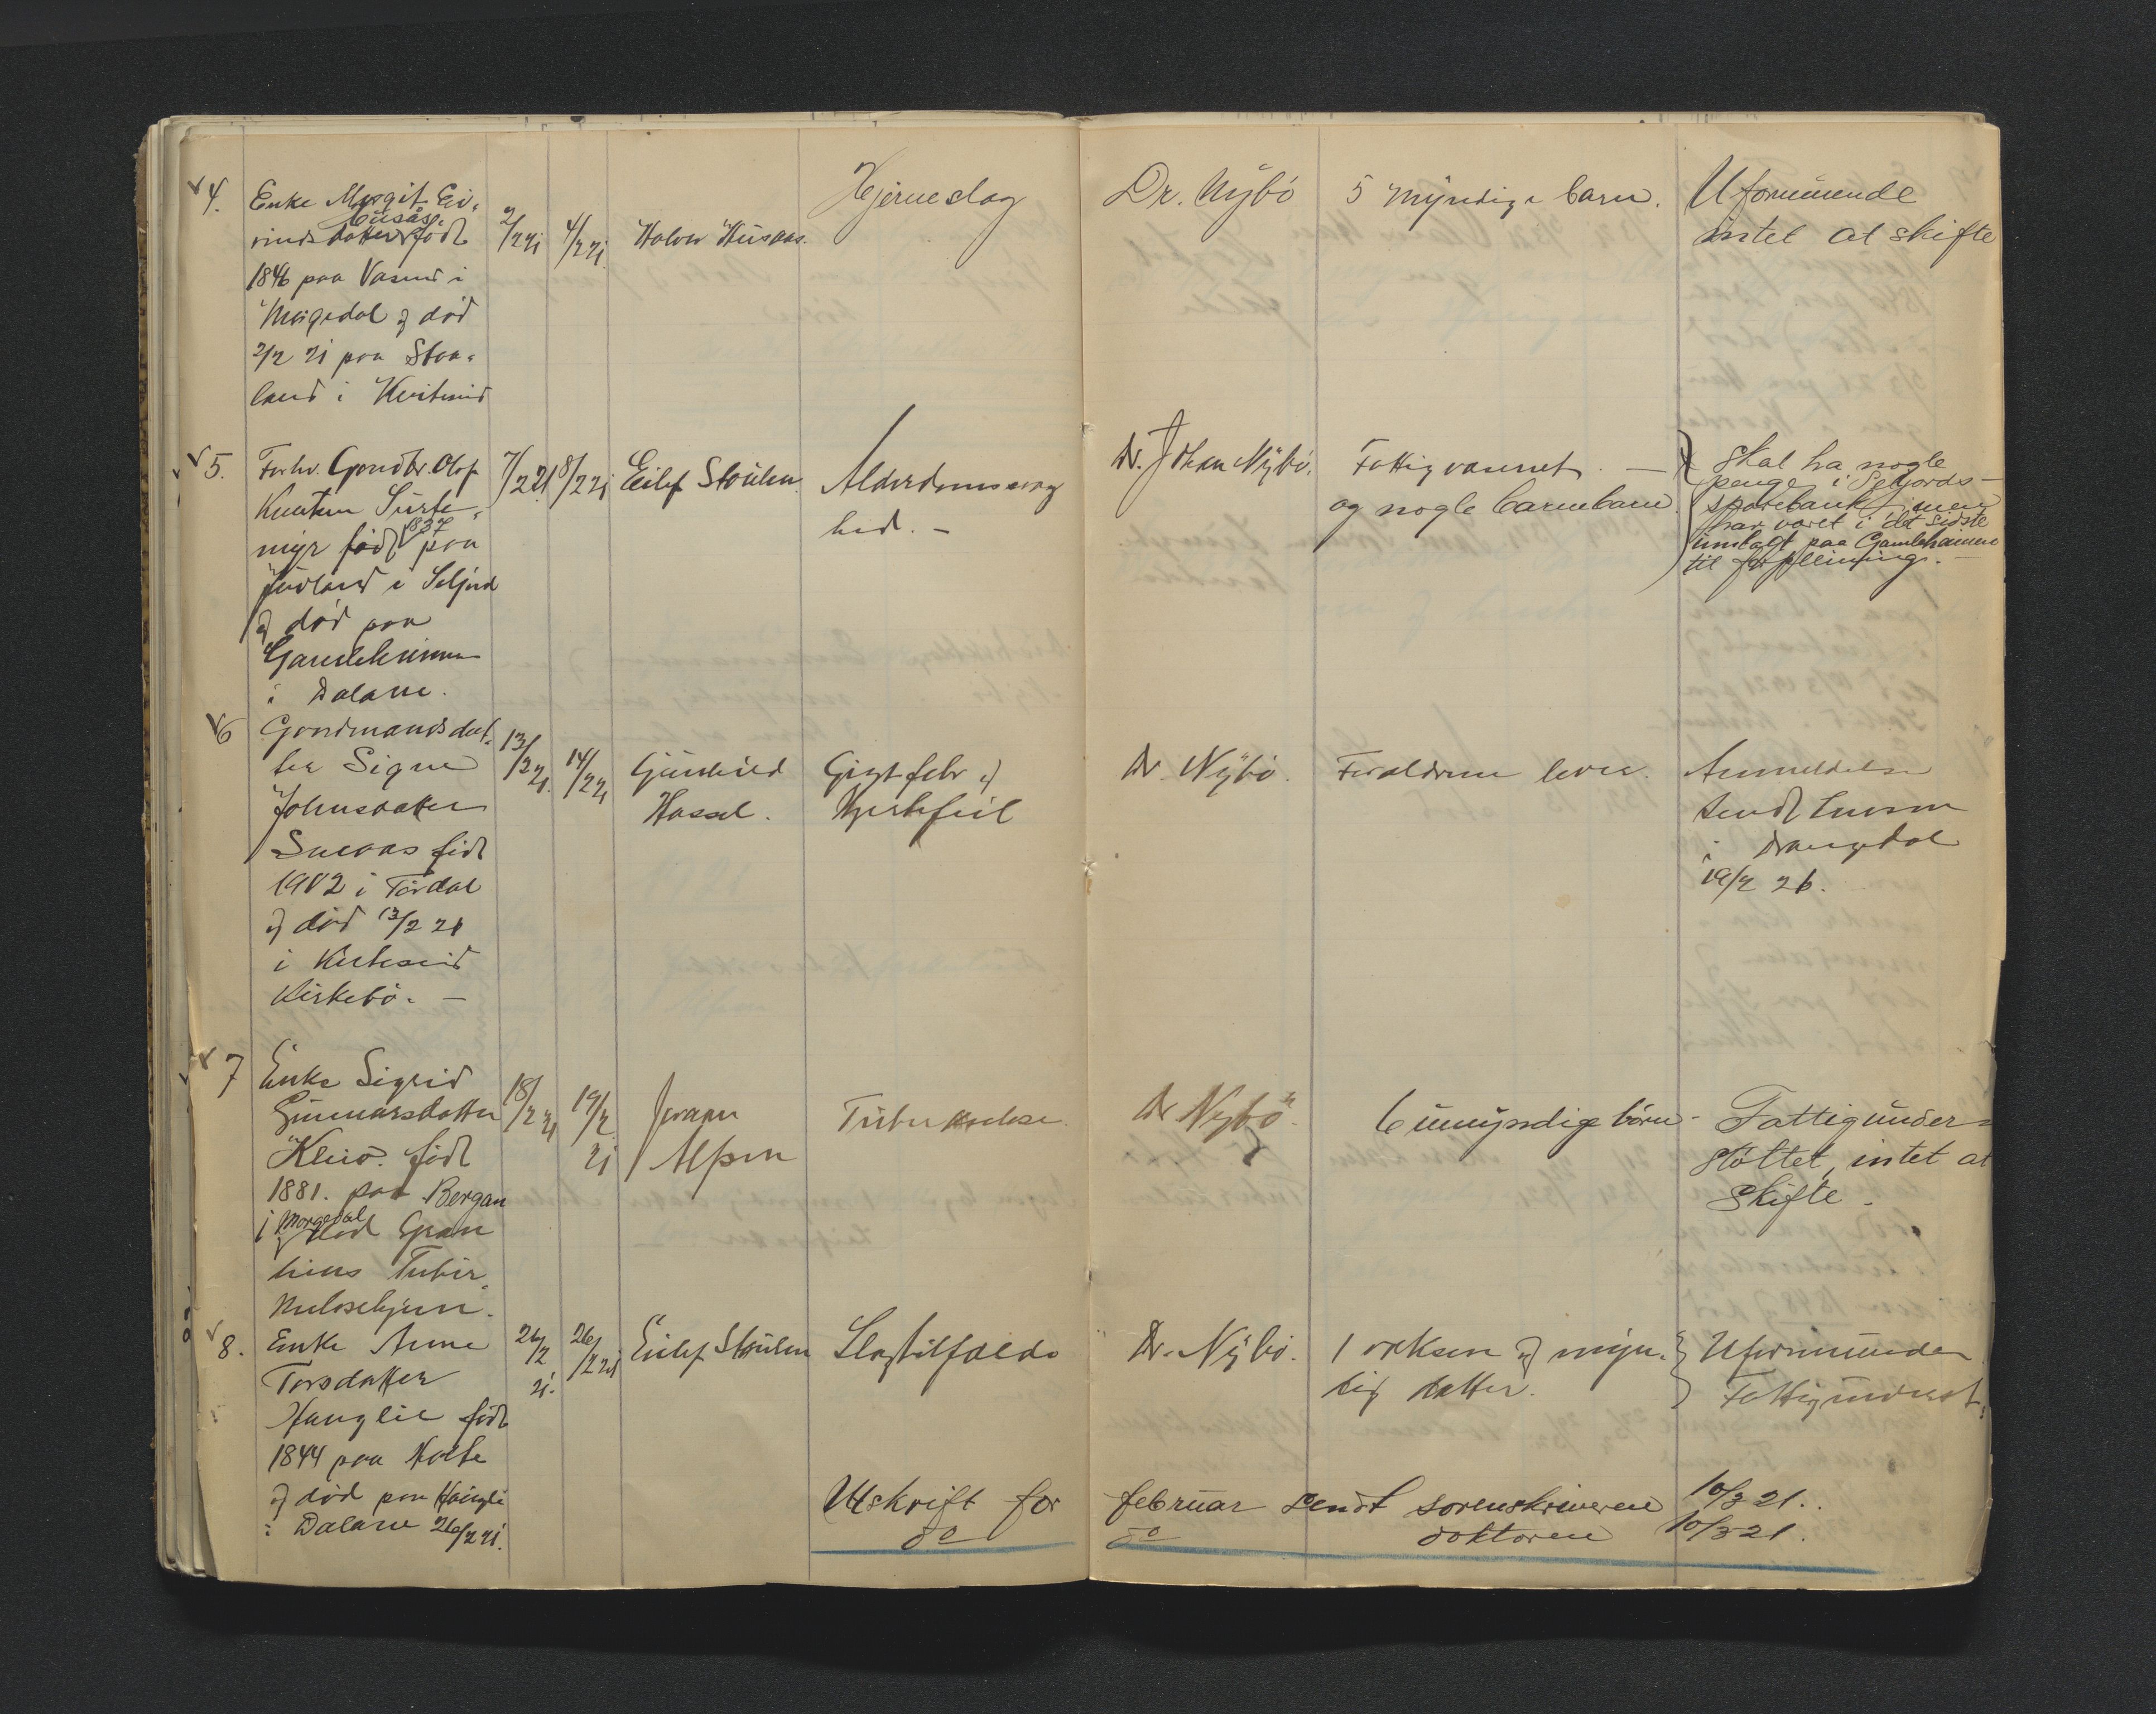 4. Enke Margit Ei-
Husås.
vindsdatter født
1846 paa Vasend i
Morgedal og død
2/2 21 paa Staa-
land i Kviteseid
2/2 21 4/2 21 Halvor Husaas.
Hjerneslag
Dr. Nybö
5 myndige barn.
Uformuende
intet at skifte
5. Forhv. Gardbr. Olof
Knutsen Surte-
myr født 1837 paa
Juvland i Seljord
og død paa
Gamleheimen
i Dalane.
7/2 21 8/2 21 Eilef Stoulen
Alderdomssvag
hed. -
Dr. Johan Nybö.
Fattigvæsenet. -
og nogle barnebarn
Skal ha nogle
penge i Seljords-
sparebank, men
har været i det sidste
indlagt paa Gamleheimen
til forpleining. -
6 Gardmandsdat-
ter Signe
Johnsdatter
født
1902 i Tørdal
og død 13/2 21
i Kviteseid
Kirkebö. -
13/2 21. 14/2 21
Gunhild
Hassel.
Gigtfeber og
Hjertefeil
Dr. Nybö.
Forældrene lever.
Anmeldelse
sendt
i Drangedal
19/2 21.
7 Enke Sigrid
Gunnarsdatter
født
1881. paa Bergan
i Morgedal
og død Gran
heims Tuber-
kulosehjem.
18/2 21 19/2 21
Jørgen
Alfsen
Tuberkulose.
Dr Nybö.
6 umyndige börn -
Fattigunder-
støttet, intet at
skifte -
8. Enke Anne
Torsdatter
Hauglie født
1844 paa Holte
og død paa Haugli
i Dalane 26/2 21.
26/2 21. 26/2 21 Eilef Stoulen
Slagtilfælde
Dr. Nybö.
1 voksen og myn-
dig datter.
Uformuende
Fattigunderst.
Utskrift for februar sendt sorenskriveren 10/3 21.
do do doktoren 10/3 21.